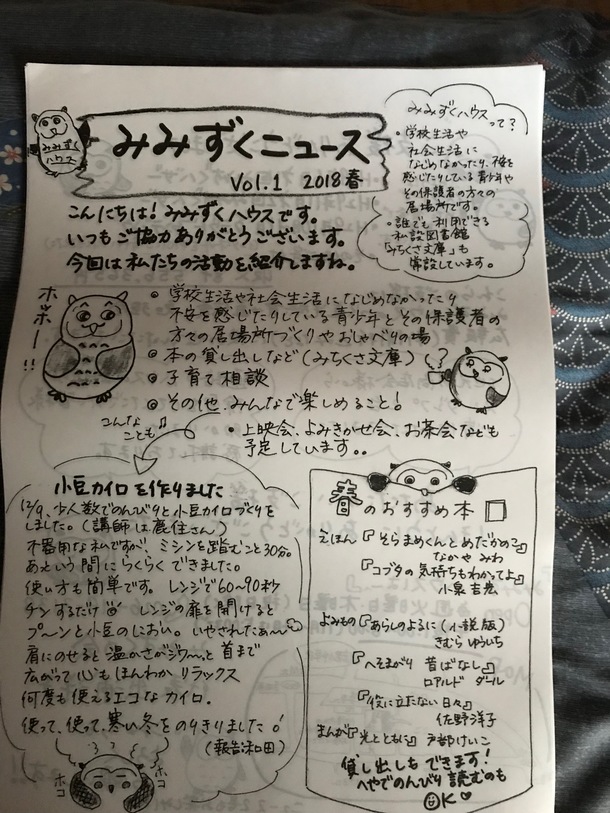 みみずく
ハウス
みみずくニュース
Vol.1 2018春
こんにちは！みみずくハウスです。
いつもご協力ありがとうございます。
今回は私たちの活動を紹介しますね。
みみずくハウスって？
・学校生活や
社会生活に
なじめなかったり、不安を
感じたりしている青少年や
その保護者の方々の
居場所です。
・誰でも利用できる
私設図書館
「みちくさ文庫」も
常設しています。
ホッホー!!
・学校生活や社会生活になじめなかったり
不安を感じたりしている青少年とその保護者の
方々の居場所づくりやおしゃべりの場
・本の貸し出しなど（みちくさ文庫）
・子育て相談
・その他、みんなで楽しめること！
こんな
ことも♪
・上映会、よみきかせ会、お茶会なども
予定しています。。
小豆カイロを作りました
12/9、少人数でのんびりと小豆カイロづくりを
しました。（講師は鹿住さん）
不器用な私ですが、ミシンを踏むこと30分。
あという間にらくらくできました。
使い方も簡単です。レンジで60〜90秒
チンするだけ レンジの扉を開けると
プ〜ンと小豆のにおい。いやされたぁ〜
肩にのせると温かさがジワ〜っと首まで
広がって心もほんわかリラックス
何度も使えるエコなカイロ。
使って、使って、寒い冬をのりきりました！
（報告:和田）
ホコ
ホコ
春のおすすめ本
えほん『そらまめくんとめだかのこ』
なかや みわ
『コブタの気持ちもわかってよ』
小泉吉宏
よみもの『あらしのよるに（小説版）』
きむら ゆういち
『へそまがり昔ばなし』
ロアルド ダール
『役に立たない日々』
佐野洋子
まんが『光とともに』戸部けいこ
貸し出しもできます！
へやでのんびり読むのも
OK♡